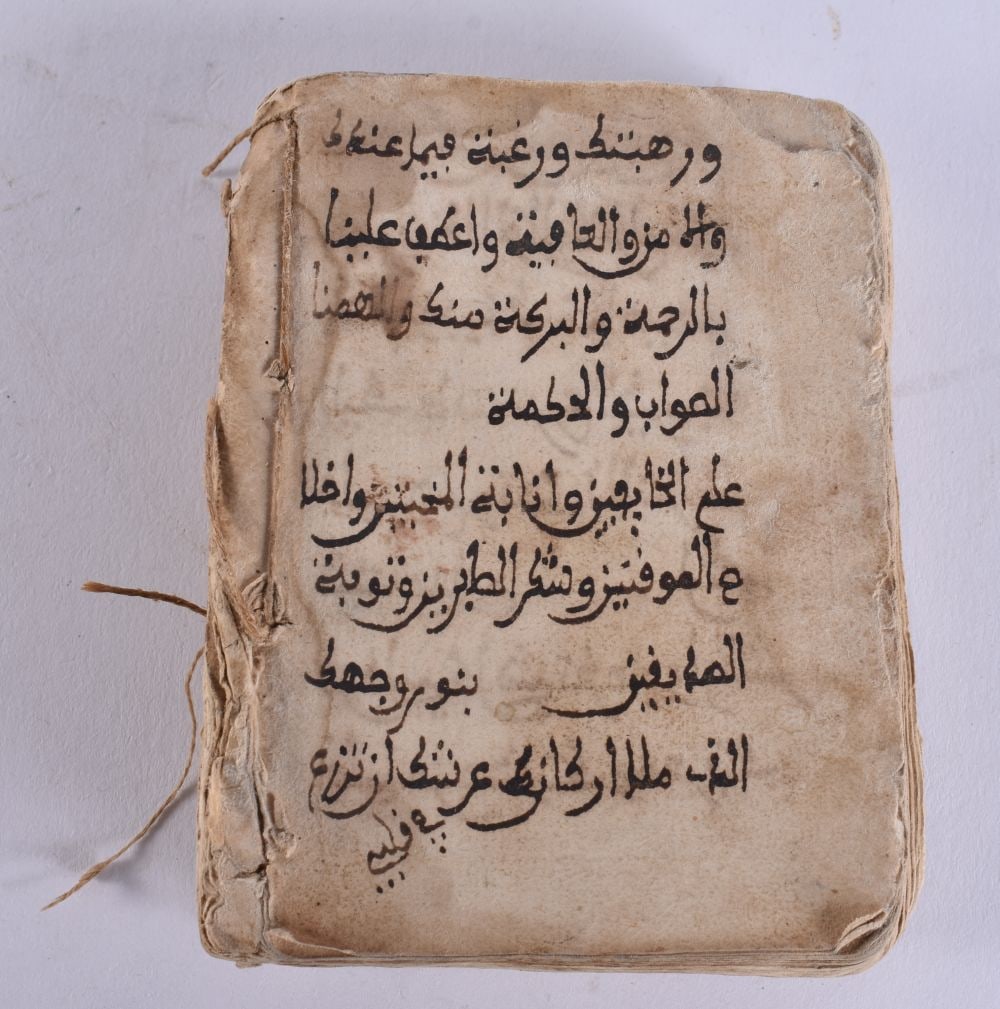 ورهبتك ورغبتة فيما عندك
والامن والعافية واعطف علينا
بالرحمة والبركة منك والهمنا
الصواب والحكمة
علم الخايفين وانابة المخبتين واخلا
ص الموقنين وشكر الصابرين وتوبة
الصديقين بنور وجهك
الذي ملا اركان عرشك ان تزرع
في قلبي